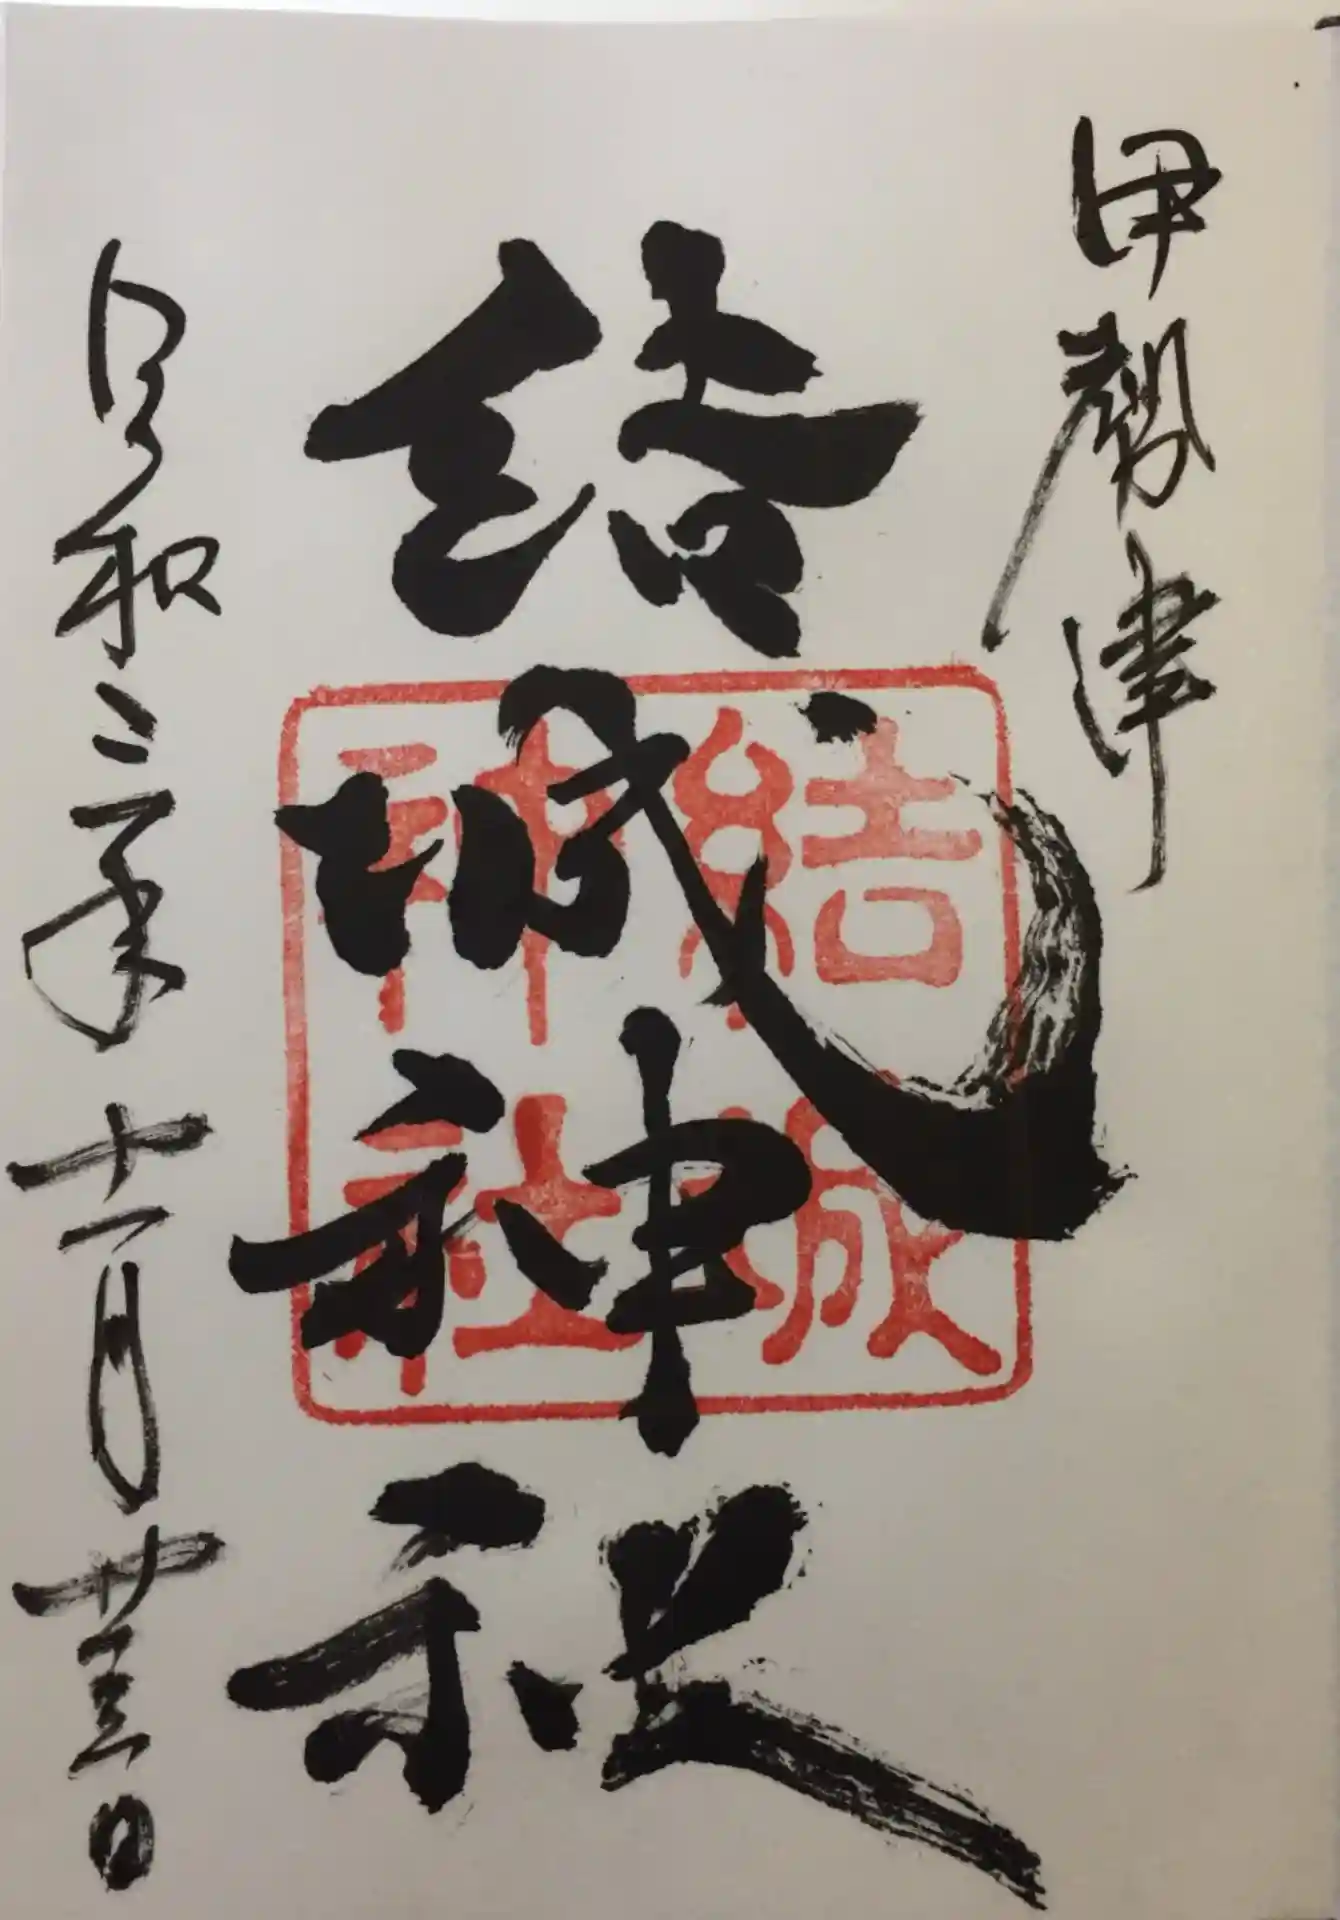 伊勢津
結城神社
令和二年十一月廿三日
結城神社